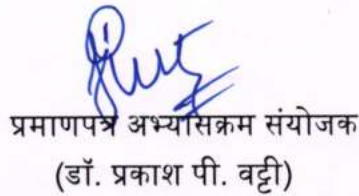 प्रमाणपत्र अभ्यासक्रम संयोजक
(डॉ. प्रकाश पी. वट्टी)